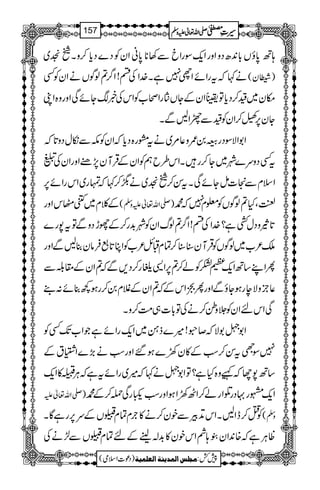 سیرتِ مصطفیٰ صلی اللہ تعالیٰ علیہ وسلم
157
ہاتھ پاؤں باندھ دو اور ایک سوراخ سے کھانا پانی ان کو دے دیا کرو۔ شیخ نجدی
(شیطان) نے کہا کہ یہ رائے اچھی نہیں ہے۔ خدا کی قسم! اگر تم لوگوں نے ان کو کسی
مکان میں قید کر دیا تو یقیناً ان کے جاں نثار اصحاب کو اس کی خبر لگ جائے گی اور وہ اپنی
جان پر کھیل کر ان کو قید سے چھڑا لیں گے۔
ابوالاسود ربیعہ بن عمرو عامری نے یہ مشورہ دیا کہ ان کو مکہ سے نکال دو تاکہ
یہ کسی دوسرے شہر میں جا کر رہیں۔ اس طرح ہم کو ان کے قرآن پڑھنے اور ان کی تبلیغ
اسلام سے نجات مل جائے گی۔ یہ سن کر شیخ نجدی نے بگڑ کر کہا کہ تمہاری اس رائے پر
لعنت، کیا تم لوگوں کو معلوم نہیں کہ محمد (صلی اللہ تعالیٰ علیہ وسلم) کے کلام میں کتنی مٹھاس اور
تاثیر و دل کشی ہے؟ خدا کی قسم! اگر تم لوگ ان کو شہر بدر کر کے چھوڑ دو گے تو یہ پورے
ملک عرب میں لوگوں کو قرآن سنا سنا کر تمام قبائل عرب کو اپنا تابع فرمان بنا لیں گے اور پھر
اپنے ساتھ ایک عظیم لشکر کو لے کر تم پر ایسی یلغار کر دیں گے کہ تم ان کے مقابلہ سے
عاجز و لاچار ہو جاؤ گے اور پھر بجز اس کے کہ تم ان کے غلام بن کر رہو کچھ بنائے نہ بنے
گی اس لئے ان کو جلا وطن کرنے کی تو بات ہی مت کرو۔
ابوجہل بولا کہ صاحبو! میرے ذہن میں ایک رائے ہے جو اب تک کسی کو
نہیں سوجھی یہ سن کر سب کے کان کھڑے ہو گئے اور سب نے بڑے اشتیاق کے
ساتھ پوچھا کہ کہیے وہ کیا ہے؟ تو ابوجہل نے کہا کہ میری رائے یہ ہے کہ ہر قبیلہ کا ایک
ایک مشہور بہادر تلوار لے کر اٹھ کھڑا ہو اور سب یکبارگی حملہ کر کے محمد (صلی اللہ تعالیٰ علیہ
وسلم) کو قتل کر ڈالیں۔ اس تدبیر سے خون کرنے کا جرم تمام قبیلوں کے سر پر رہے گا۔
ظاہر ہے کہ خاندان بنو ہاشم اس خون کا بدلہ لینے کے لئے تمام قبیلوں سے لڑنے کی
پیش کش: مجلس المدینۃ العلمیۃ (دعوتِ اسلامی)